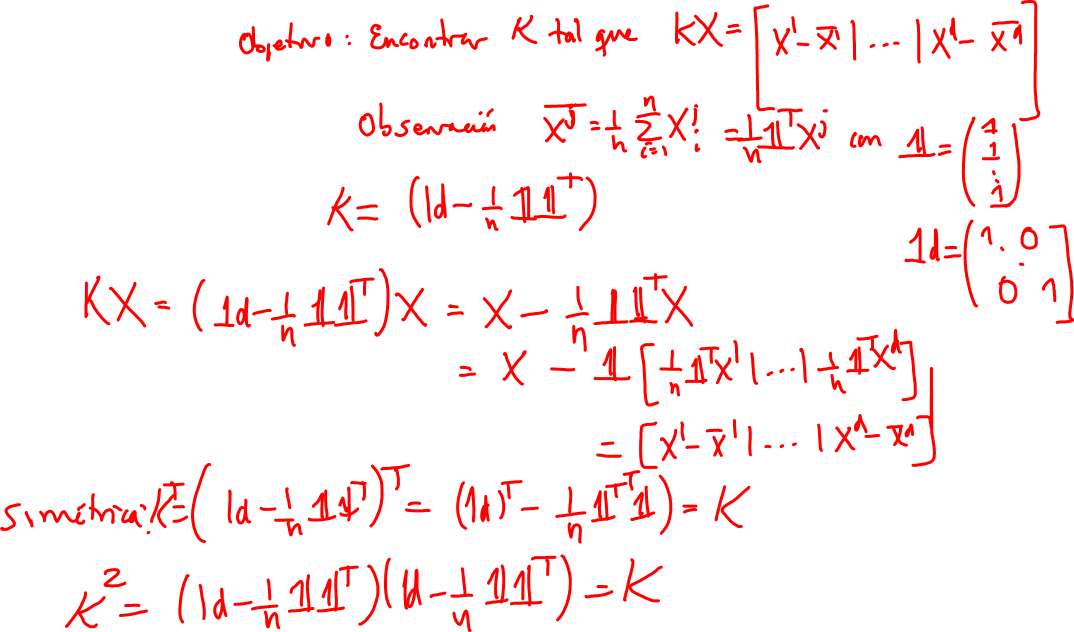 Objetivo: Encontrar K tal que KX = [X¹ - X̄¹ | ... | Xᵈ - X̄ᵈ]
Observación X̄ʲ = 1/n ∑ⁿᵢ₌₁ Xᵢʲ = 1/n 𝟙ᵀXʲ con 𝟙 = (1 1 ⋮ 1)
K = (Id - 1/n 𝟙𝟙ᵀ)
1d = (1 . 0 0 1]
KX = (1d - 1/n 𝟙𝟙ᵀ)X = X - 1/n 𝟙𝟙ᵀX
= X - 𝟙 [1/n 𝟙ᵀX¹ | ... | 1/n 𝟙ᵀXᵈ]
= [X¹ - X̄¹ | ... | Xᵈ - X̄ᵈ]
Simétrica: Kᵀ = (Id - 1/n 𝟙𝟙ᵀ)ᵀ = (1d)ᵀ - 1/n 𝟙ᵀᵀ𝟙) = K
K² = (Id - 1/n 𝟙𝟙ᵀ)(Id - 1/n 𝟙𝟙ᵀ) = K